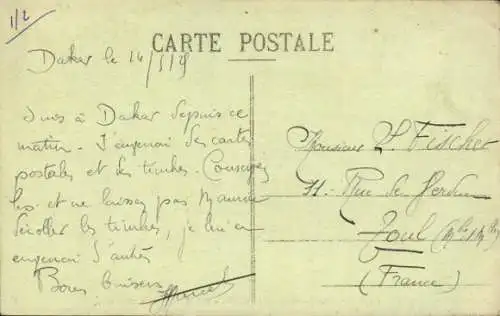 1/2
CARTE POSTALE
Dakar le 14/5/29
suis à Dakar depuis ce
matin. J'envoie des cartes
postales et des timbres. Conservez
les et ne laissez pas Maurice
décoller les timbres, je lui en
enverrai d'autres
Bons baisers
Marcel
Monsieur L. Fischer
11 - Rue de Verdun
Toul (Mthe & Mlle)
(France)